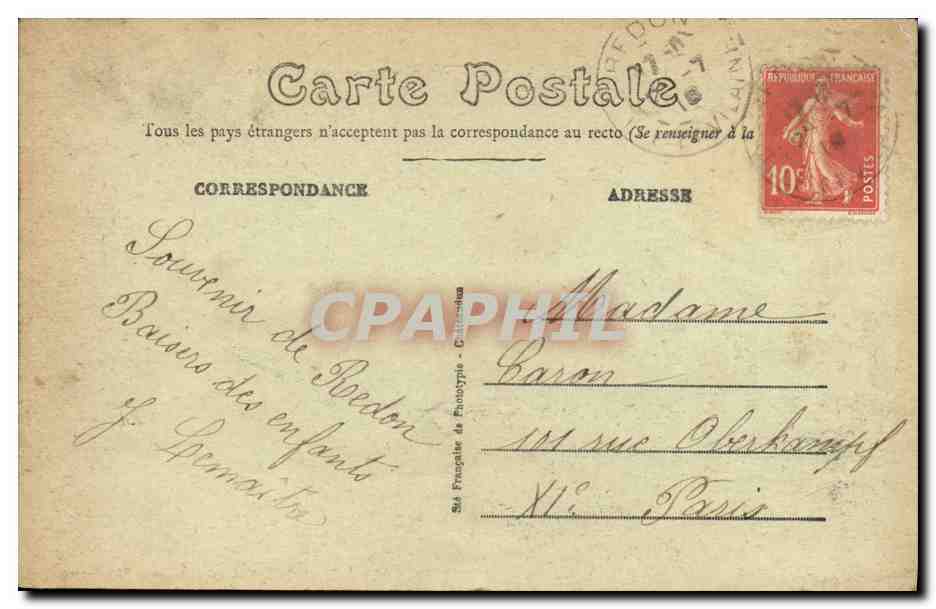 Carte Postale
Tous les pays étrangers n'acceptent pas la correspondance au recto (Se renseigner à la
CORRESPONDANCE
ADRESSE
REDON
VILAINE
REPUBLIQUE FRANÇAISE
10c
POSTES
Souvenir de Redon
Baisers des enfants
J. Lemaître
Madame
Caron
101 rue Oberkampf
XIe Paris
Sté Française de Phototypie -
CPAPHIL